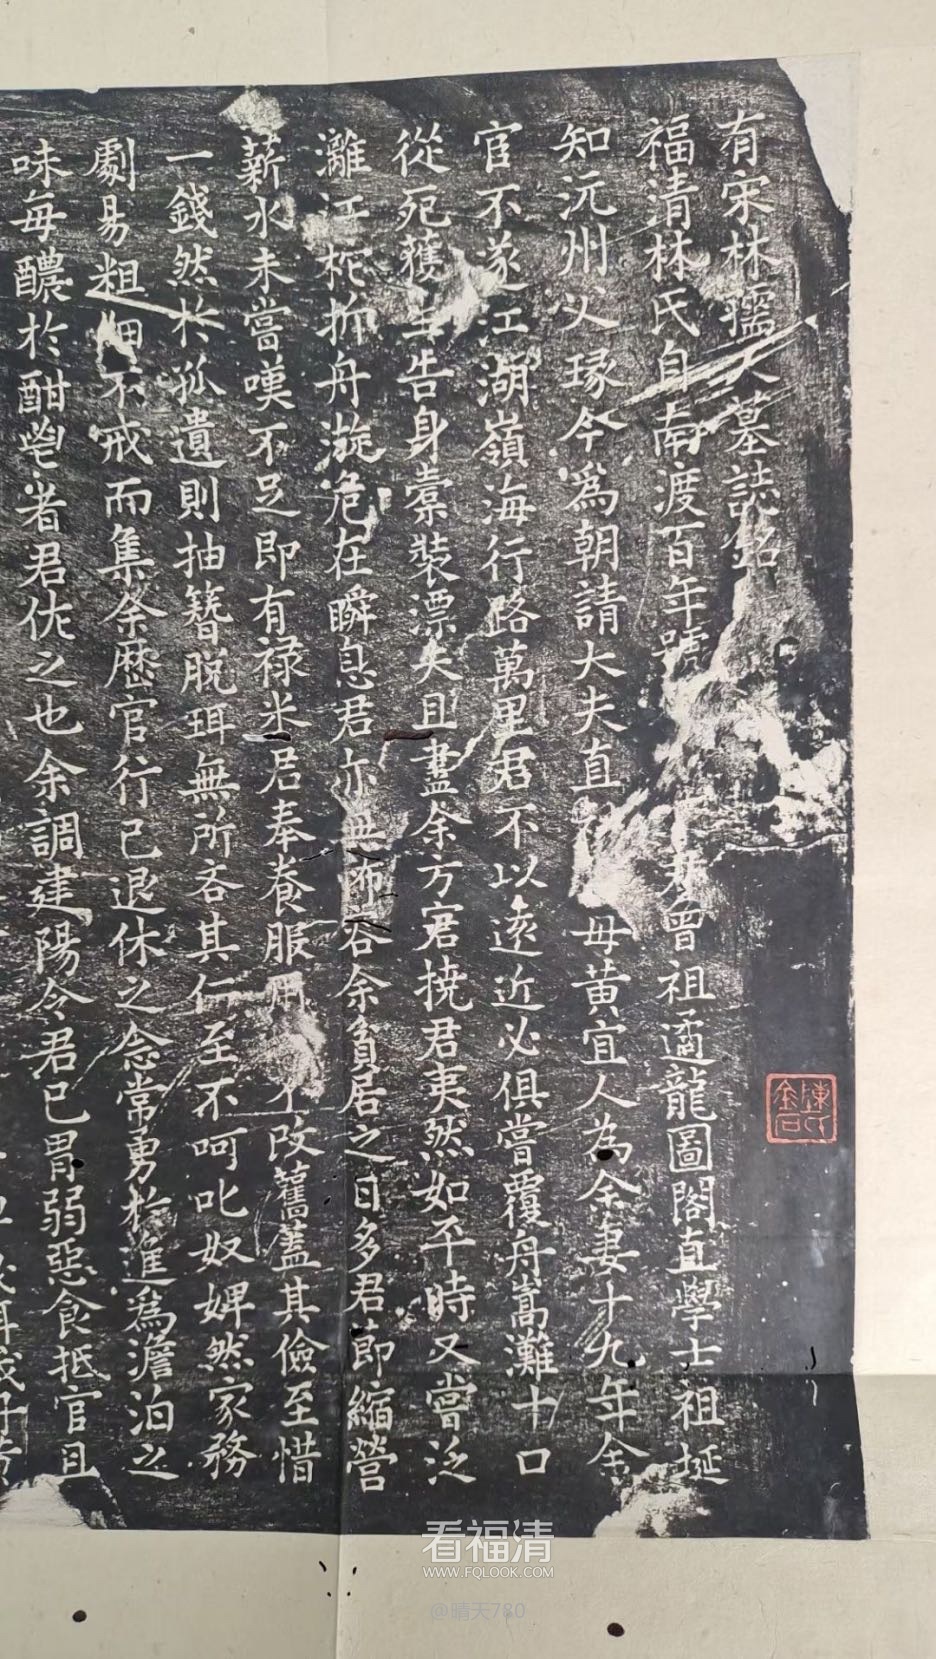 有宋林孺人墓誌銘
福清林氏自南渡百年號 曾祖遹龍圖閣直學士祖埏
知沅州父瑑今爲朝請大夫直 母黄宜人為余妻十九年余
官不遂江湖嶺海行路萬里君不以遠近必俱嘗覆舟嵩灘十口
從死獲生告身橐裝漂失且盡余方窘撓君夷然如平時又嘗泛
灕江柁折舟漩危在瞬息君亦無怖容余貧居之日多君節縮營
薪水未嘗嘆不足即有禄米居奉養服用不改舊蓋其儉至惜
一錢然於孤遺則抽簪脫珥無所吝其仁至不呵叱奴婢然家務
劇易粗細不戒而集余歷官行已退休之念常勇於進爲澹泊之
味每醲於酣豢者君佐之也余調建陽令君已胃弱惡食抵官且
陳氏金石
看福清
WWW.FQLOOK.COM
@晴天780